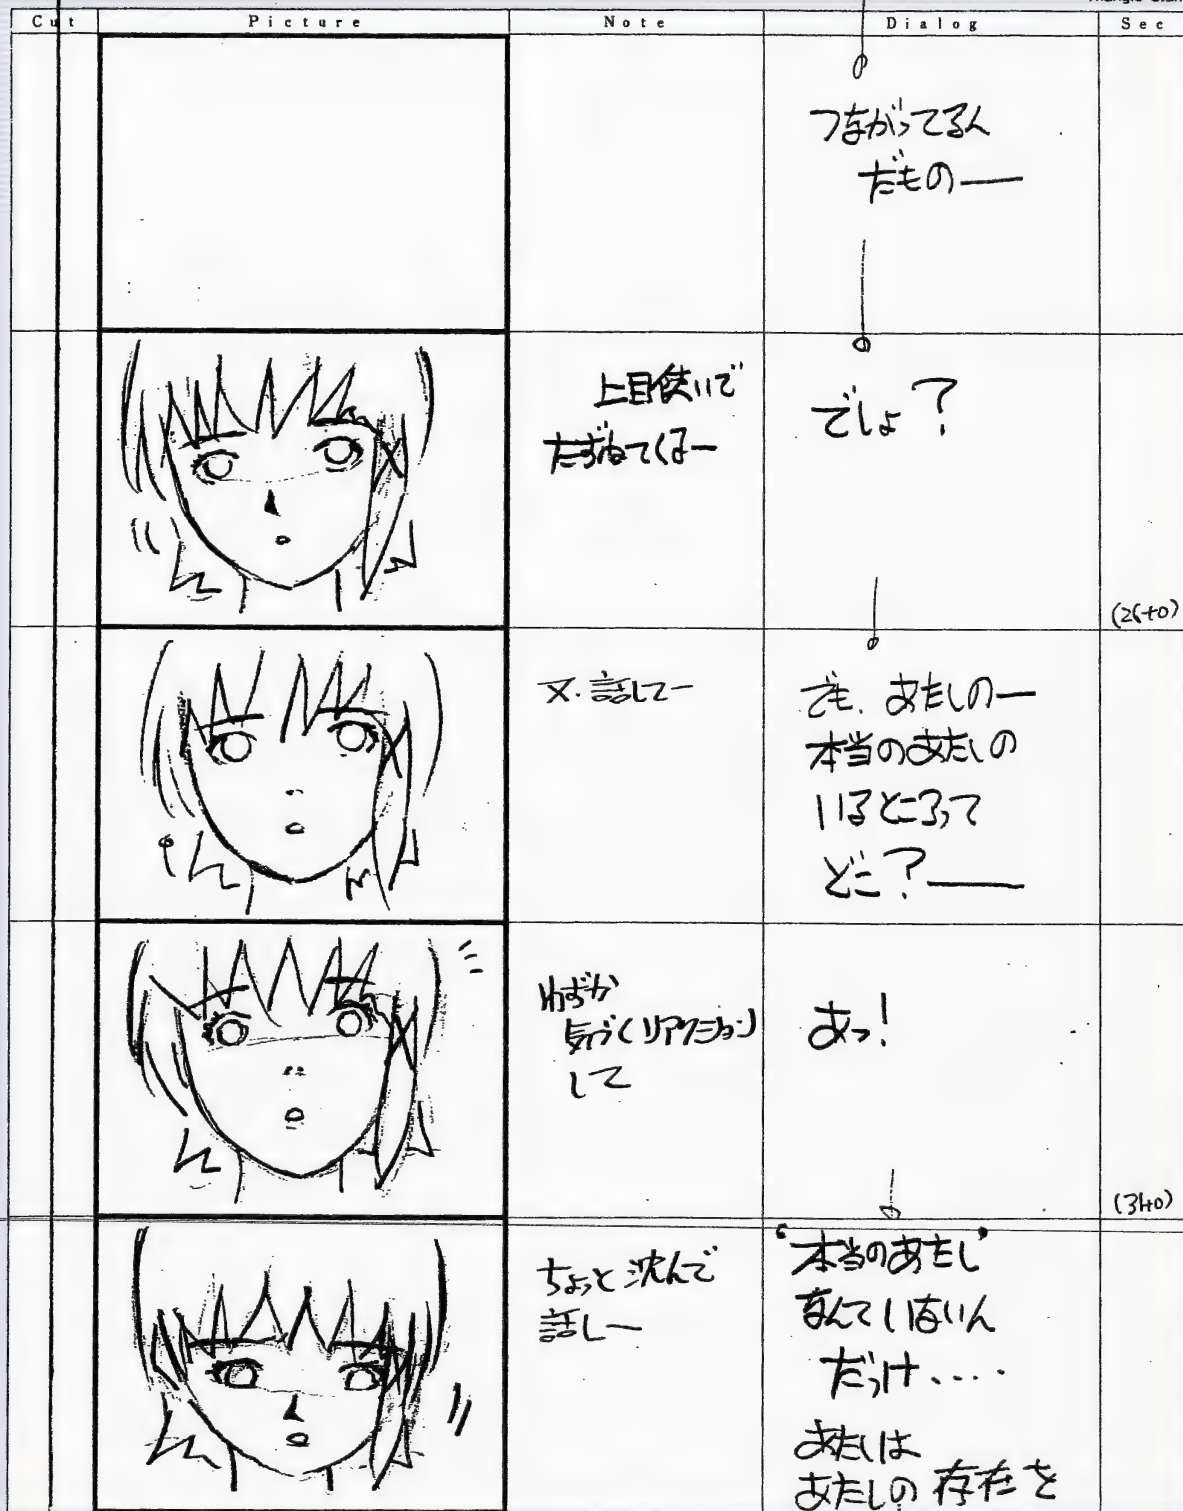 Cut Picture Note Dialog Sec
つながってるん
だもの―
上目使いで
たずねてくる―
でしょ?
(26+0)
又.話して―
でも、あたしの―
本当のあたしの
いるところって
どこ?―
わずか
気づくリアクション
して
あっ!
(3+0)
ちょっと沈んで
話し―
“本当のあたし”
なんていないん
だっけ....
あたしは
あたしの存在を